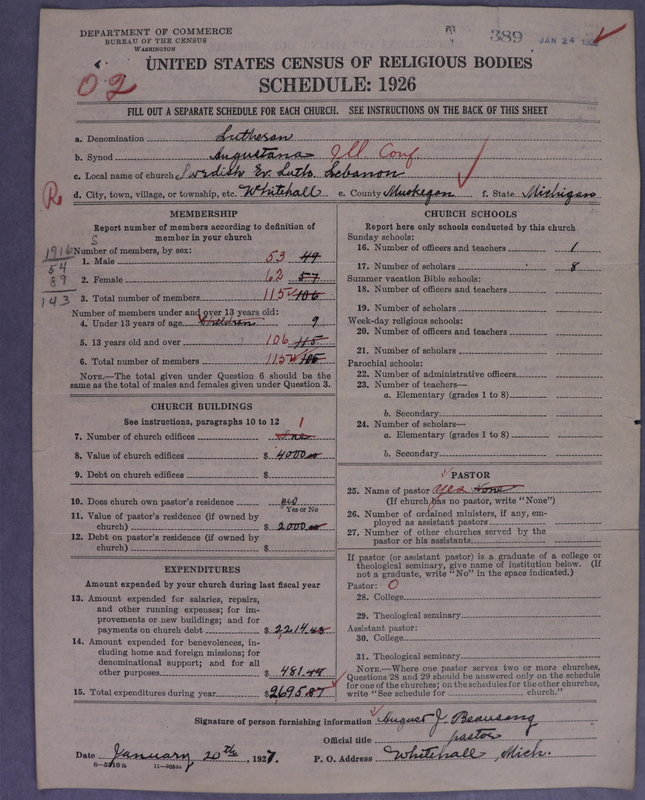 DEPARTMENT OF COMMERCE
BUREAU OF THE CENSUS
WASHINGTON
389
JAN 24
02
UNITED STATES CENSUS OF RELIGIOUS BODIES
SCHEDULE: 1926
FILL OUT A SEPARATE SCHEDULE FOR EACH CHURCH. SEE INSTRUCTIONS ON THE BACK OF THIS SHEET
a. Denomination Lutheran
b. Synod Augustana Ill Conf.
c. Local name of church Swedish Ev. Luth. Lebanon
R d. City, town, village, or township, etc. Whitehall e. County Muskegon f. State Michigan
MEMBERSHIP
Report number of members according to definition of member in your church
S
1916
54
89
143
Number of members, by sex:
1. Male 53 49
2. Female 62 57
3. Total number of members 115 106
Number of members under and over 13 years old:
4. Under 13 years of age Children 9
5. 13 years old and over 106 115
6. Total number of members 115 106
NOTE.—The total given under Question 6 should be
same as the total of males and females given under Question 3.
CHURCH BUILDINGS
See instructions, paragraphs 10 to 12
7. Number of church edifices 1 One
8. Value of church edifices $ 4000.00
9. Debt on church edifices $
10. Does church own pastor's residence yes
Yes or No
11. Value of pastor's residence (if owned by
church) $ 2000.00
12. Debt on pastor's residence (if owned by
church) $
EXPENDITURES
Amount expended by your church during last fiscal year
13. Amount expended for salaries, repairs,
and other running expenses; for im-
provements or new buildings; and for
payments on church debt $ 2214.43
14. Amount expended for benevolences, in-
cluding home and foreign missions; for
denominational support; and for all
other purposes $ 481.44
15. Total expenditures during year $ 2695.87
CHURCH SCHOOLS
Report here only schools conducted by this church
Sunday schools:
16. Number of officers and teachers 1
17. Number of scholars 8
Summer vacation Bible schools:
18. Number of officers and teachers
19. Number of scholars
Week-day religious schools:
20. Number of officers and teachers
21. Number of scholars
Parochial schools:
22. Number of administrative officers
23. Number of teachers—
a. Elementary (grades 1 to 8)
b. Secondary
24. Number of scholars—
a. Elementary (grades 1 to 8)
b. Secondary
PASTOR
25. Name of pastor yes None
(If church has no pastor, write "None")
26. Number of ordained ministers, if any, em-
ployed as assistant pastors
27. Number of other churches served by the
pastor or his assistants
If pastor (or assistant pastor) is a graduate of a college or
theological seminary, give name of institution below. (If
not a graduate, write "No" in the space indicated.)
Pastor: O
28. College
29. Theological seminary
Assistant pastor:
30. College
31. Theological seminary
NOTE.—Where one pastor serves two or more churches,
Questions 28 and 29 should be answered only on the schedule
for one of the churches; on the schedules for the other churches,
write "See schedule for church."
Signature of person furnishing information August J. Beausang
Official title pastor
Date January 20th, 1927. P. O. Address Whitehall, Mich.
8—5318a 11—9554a